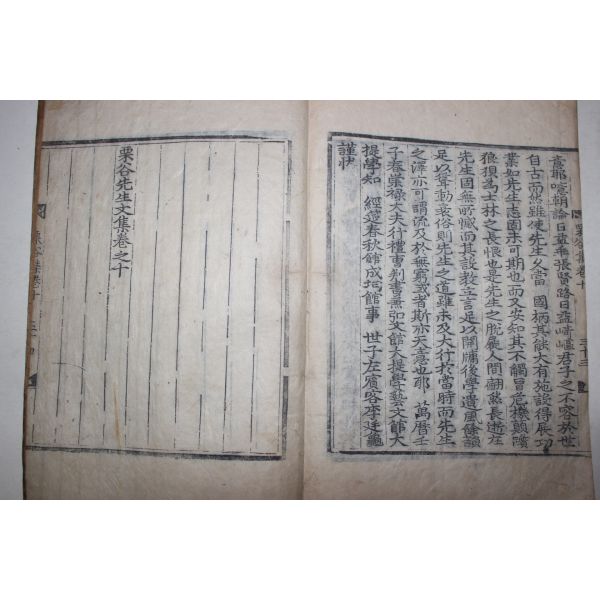 栗谷集卷十 三十三
意耶噫朝論日益乖張賢路日益崎嶇君子之不容於世
自古而然雖使先生久當 國柄其能大有施設得展功
業如先生志固未可期也而又安知其不觸冒危機顚隮
狼狽爲士林之長恨也是先生之脫屣人間翩然長逝在
先生固無所憾而其設敎立言足以開牖後學遺風餘韻
足以聳動衰俗則先生之道雖未及大行於當時而先生
之澤亦可謂流及於無窮或者斯亦天意也耶 萬曆壬
子春崇祿大夫行禮曹判書兼弘文館大提學藝文館大
提學知 經筵春秋館成均館事 世子左賓客李廷龜
謹狀
栗谷先生文集卷之十
栗谷集卷十